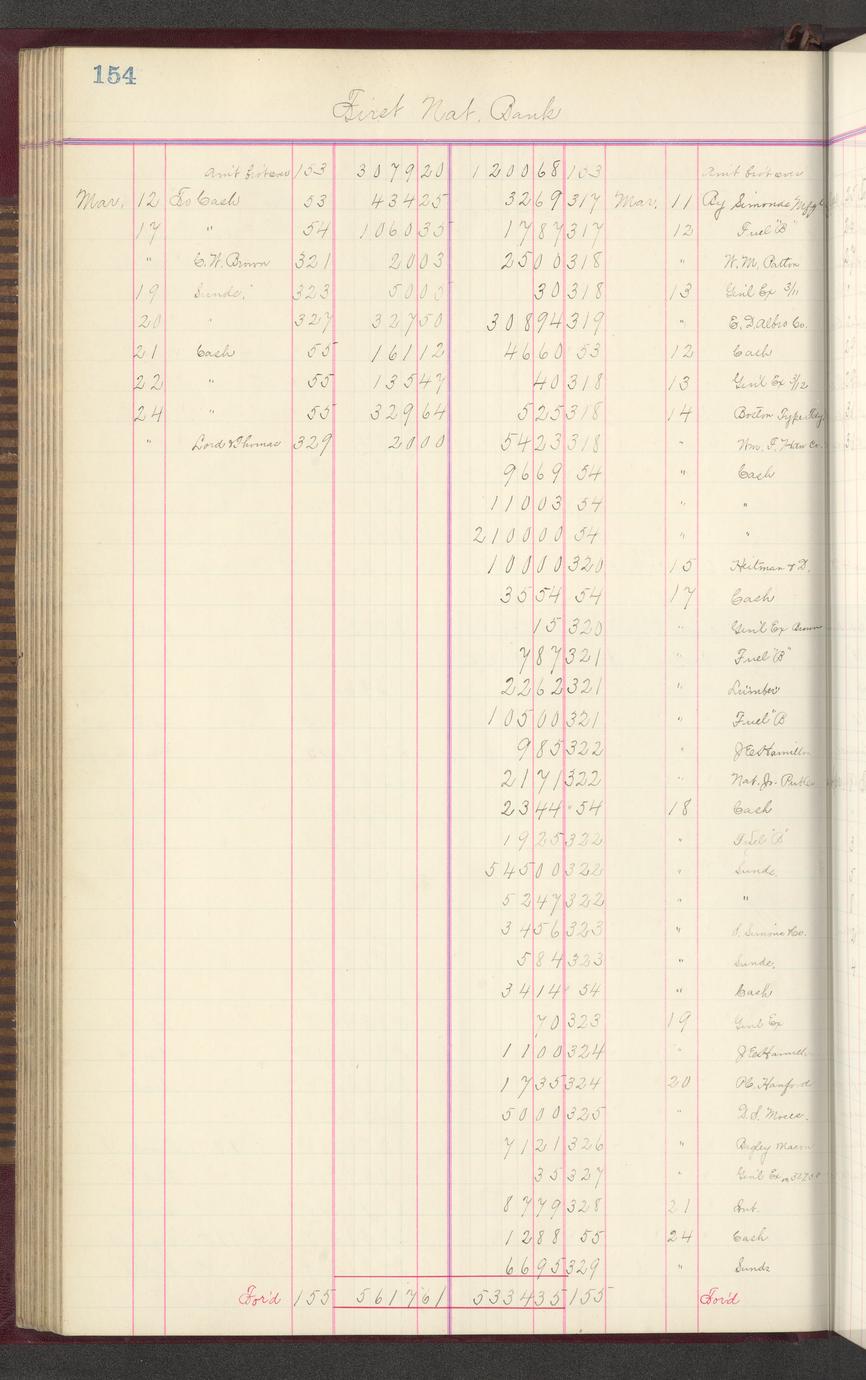 154
First Nat. Bank
Am't bro't over 153 3079 20 1200 68 153 Am't bro't over
Mar. 12 To Cash 53 434 25 32 69 317 Mar. 11 By Simonds Mfg
17 " 54 1060 35 17 87 317 12 Fuel "B"
" C. W. Brown 321 20 03 25 00 318 " W. M. Patton
19 Sunds. 323 50 00 30 318 13 Gen'l Ex 3/11
20 " 327 327 50 308 94 319 " E. D. Albro Co.
21 Cash 55 161 12 46 60 53 12 Cash
22 " 55 135 47 40 318 13 Gen'l Ex 3/12
24 " 55 329 64 5 25 318 14 Boston Type Fdy.
" Lord & Thomas 329 20 00 54 23 318 " Wm. F. Co.
96 69 54 " Cash
110 03 54 " "
2100 00 54 " "
100 00 320 15 Heitman & D.
35 54 54 17 Cash
15 320 " Gen'l Ex Brown
7 87 321 " Fuel "B"
22 62 321 " Lumber
105 00 321 " Fuel "B
9 85 322 " J E Hamilton
21 71 322 " Nat. Jr.
23 44 54 18 Cash
19 25 322 " Fuel "B"
545 00 322 " Sunds
52 47 322 " "
34 56 323 " Simons & Co.
5 84 323 " Sunds.
34 14 54 " Cash
70 323 19 Gen'l Ex
11 00 324 " J E Hamilton
17 35 324 20 P. C. Hanford
50 00 325 " D. S.
71 21 326 " Bagley
35 327 " Gen'l Ex on 327.50
87 79 328 21 Int.
12 88 55 24 Cash
66 95 329 " Sunds
For'd 155 5617 61 5334 35 155 For'd